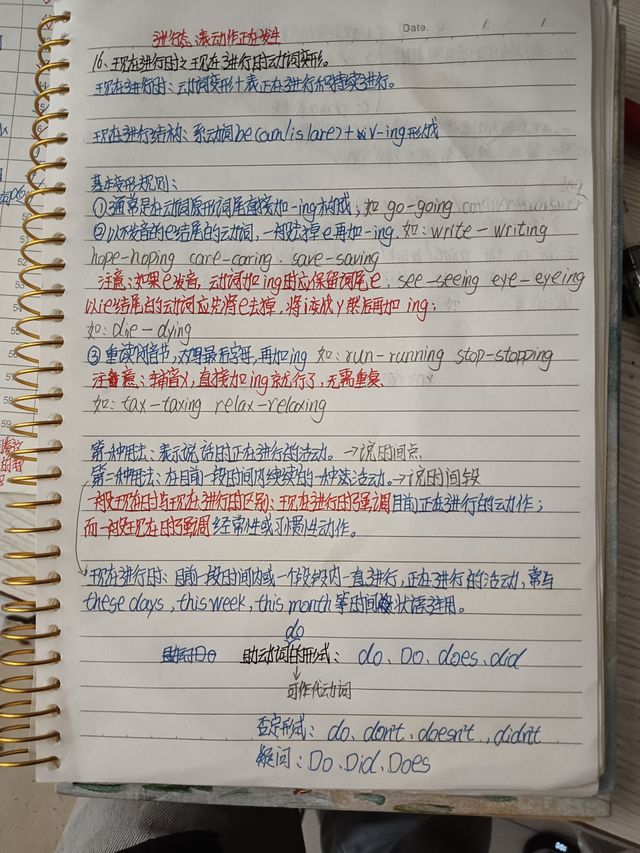 进行态:表动作正在发生
Date. / /
16、现在进行时之现在进行时动词变形。
现在进行时:动词变形+表正在进行和持续进行。
现在进行结构:系动词be(am/is/are)+v-ing形式
基本变形规则:
①通常是在动词原形词尾直接加-ing构成;如 go-going
②以不发音的e结尾的动词,一般去掉e再加-ing.如:write-writing
hope-hoping care-caring. save-saving
注意:如果e发音,动词加ing时应保留词尾e. see-seeing eye-eyeing
以ie结尾的动词应先将e去掉,将i变成y然后再加ing;
如:die-dying
③重读闭音节,双写最后字母,再加ing 如:run-running stop-stopping
注意:辅音x,直接加ing就行了,无需重复.
如:tax-taxing relax-relaxing
第一种用法:表示说话时正在进行的活动.→说时间点
第二种用法:在目前一段时间内继续的一种活动.→说时间段
一般现在时与现在进行时的区别:现在进行时强调目前正在进行的动作;
而一般现在时强调经常性或习惯性动作。
现在进行时:目前一段时间内或一个阶段内一直进行,正在进行的活动,常与
these days, this week, this month等时间状语连用。
do
助动词的形式:do、Do、does、did
可作代动词
否定形式:do、don't、doesn't、didn't
疑问:Do、Did、Does